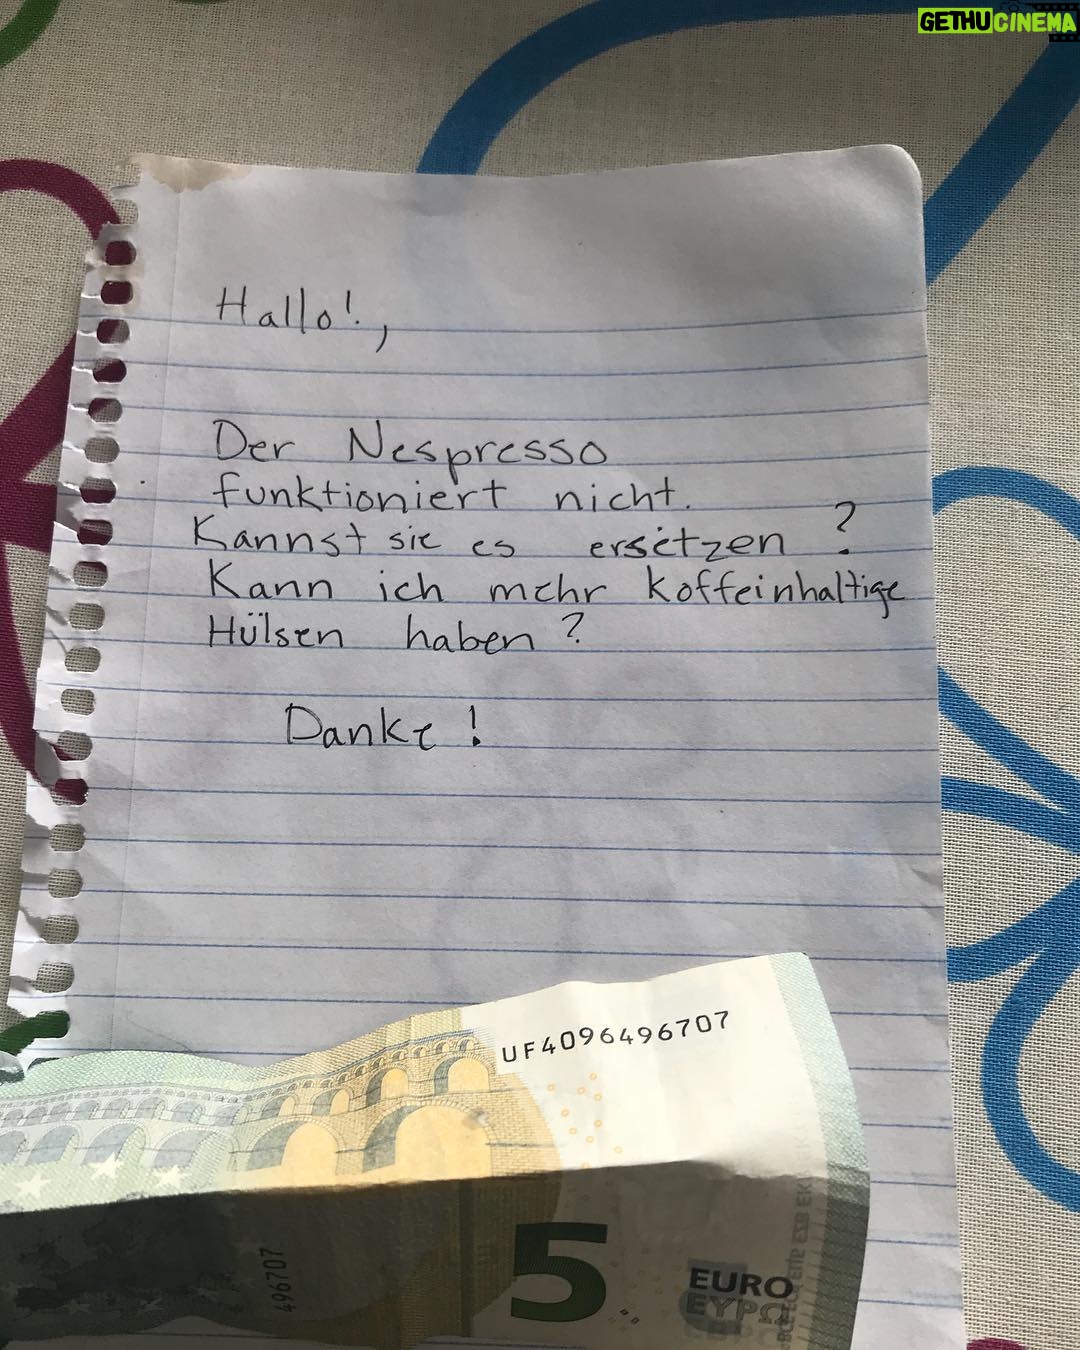 GETHUCINEMA
Hallo!,
Der Nespresso
funktioniert nicht.
Kannst sie es ersetzen?
Kann ich mehr koffeinhaltige
Hülsen haben?
Danke!
UF4096496707
496707
5
EURO
ΕΥΡΩ